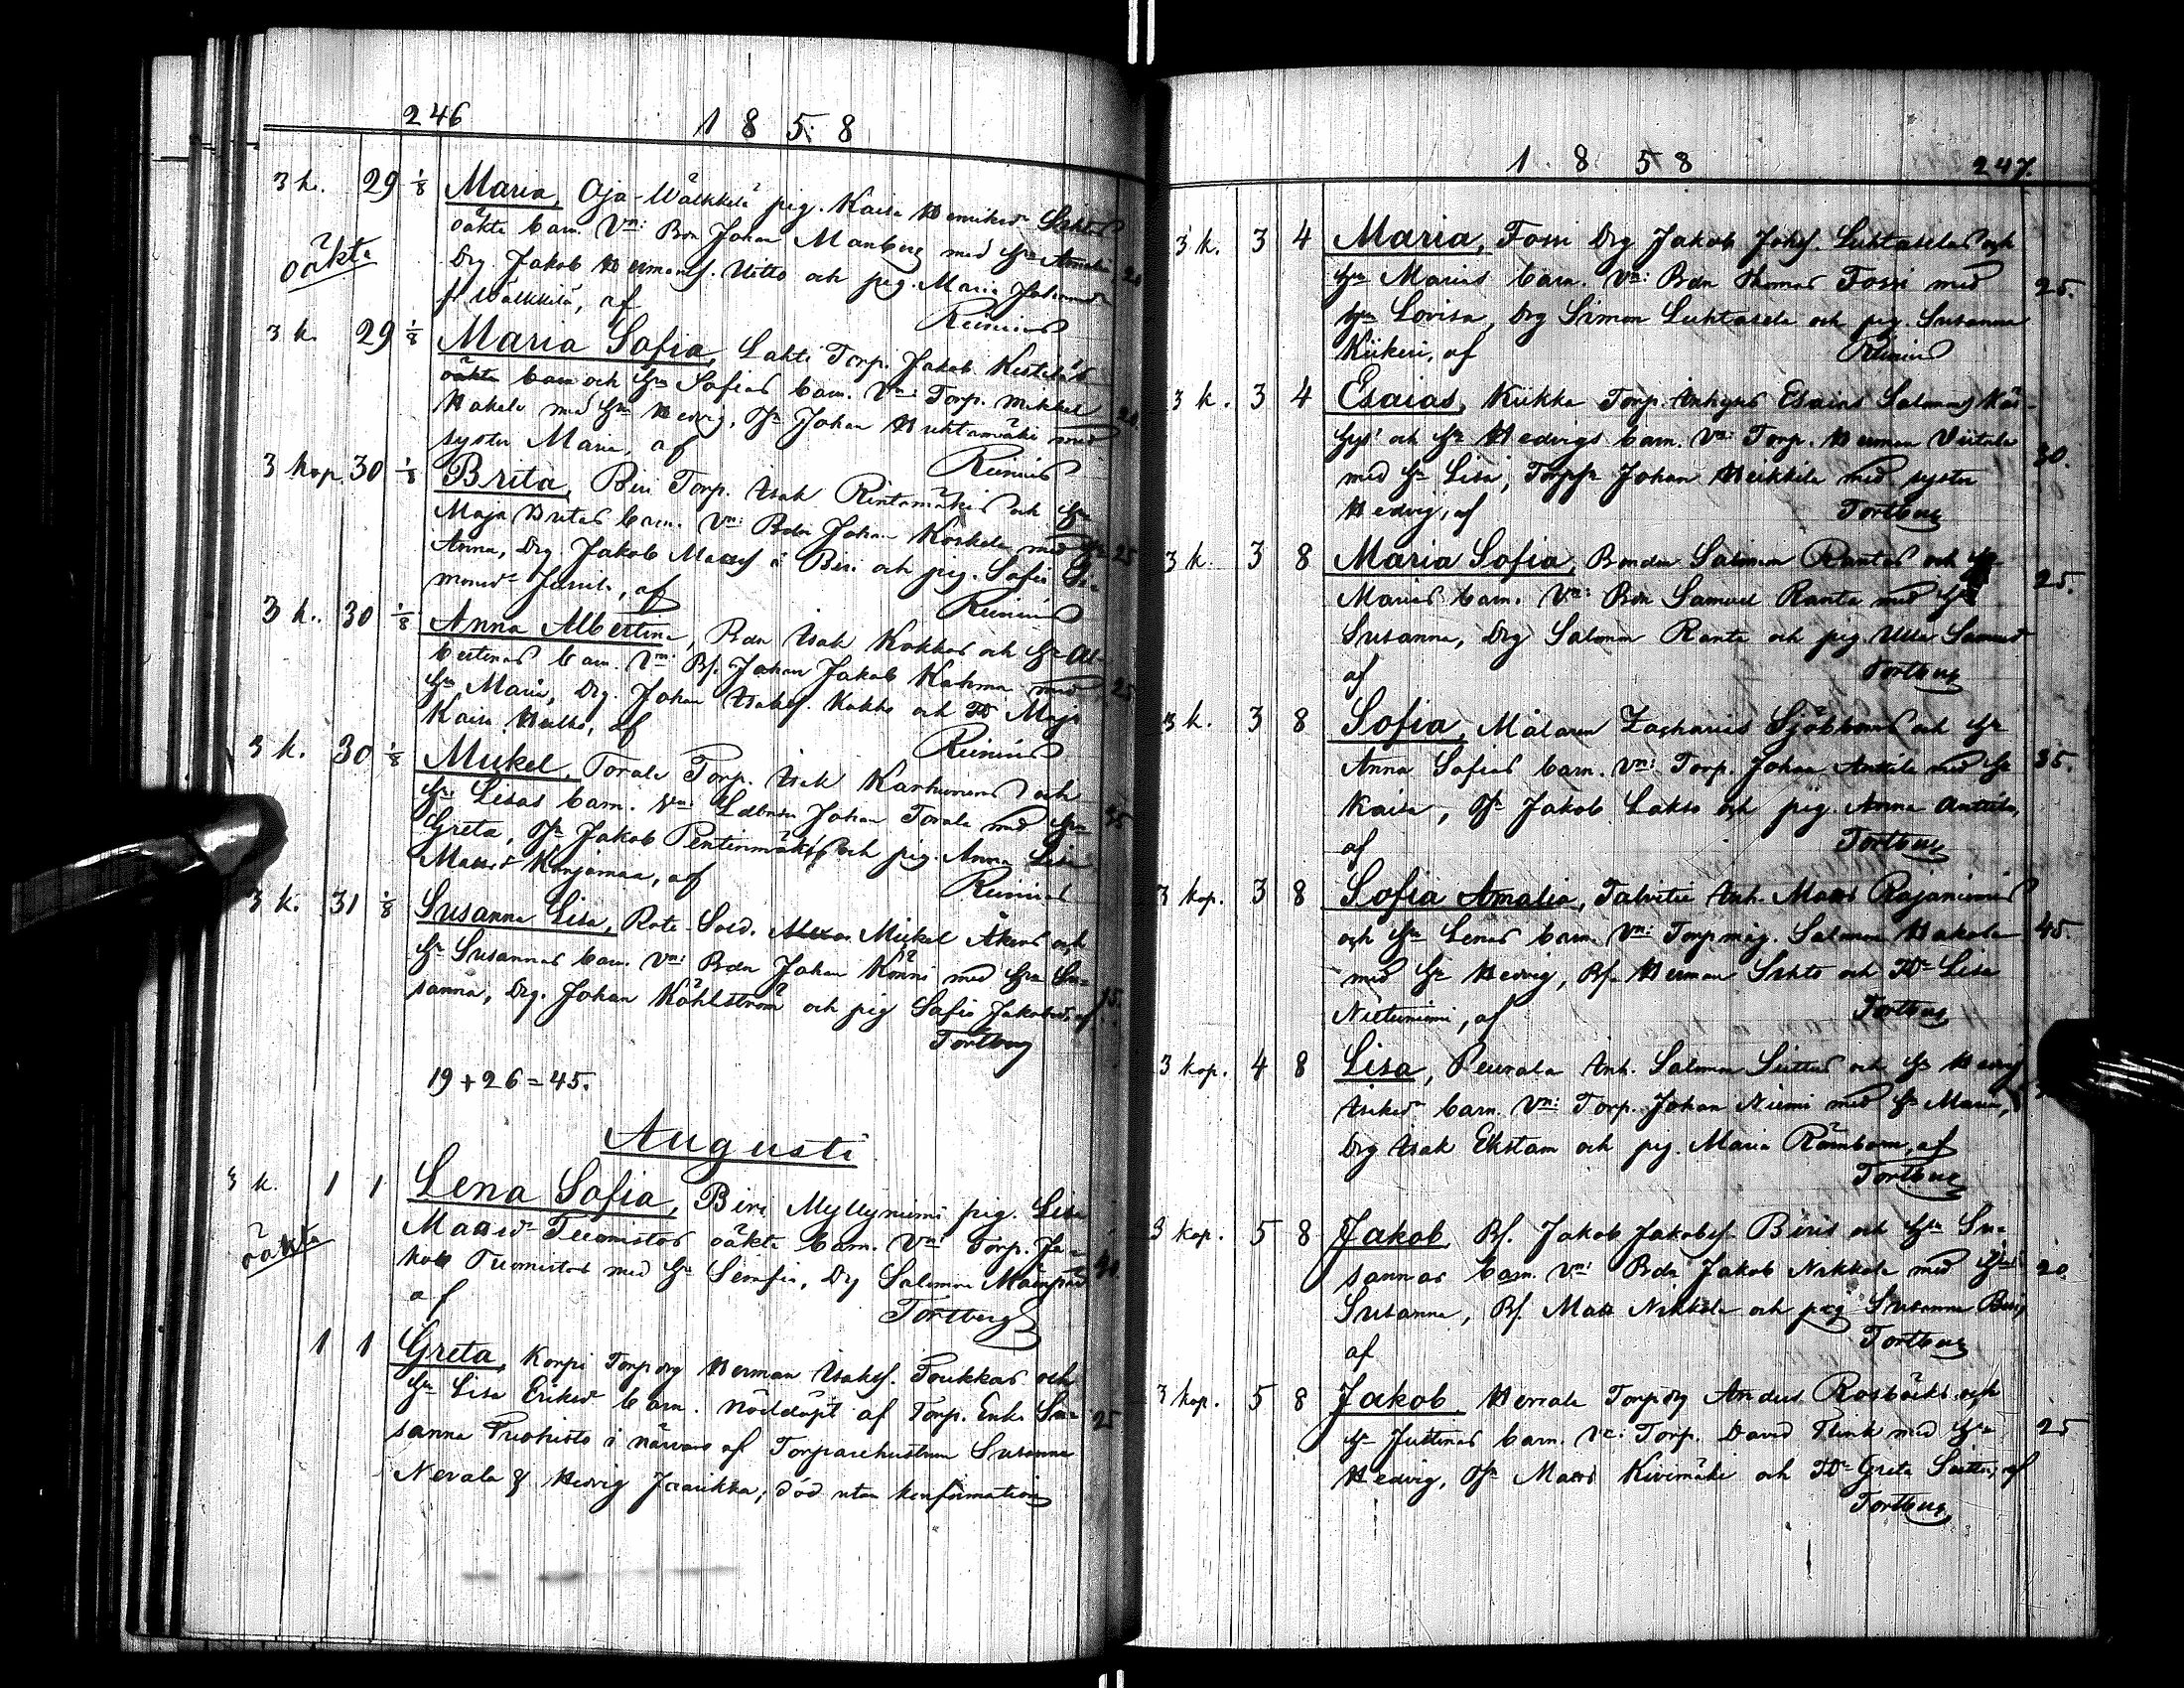 246
1 8 5 8
3 k. 29 1/8 Maria, Oja-Wälkkilä pig. Kaisa Henriksdr
oäkta barn. Vn: Bdn Johan Manberg med Hu Amalia 20
oäkta
Drg. Jakob Hermansf. och pig. Maria
Wälkkilä, af Reinius
3 k. 29 1/8 Maria Sofia, Lahti Torp. Jakob
oäkta barn och Hu Sofias barn. Vn: Torp. Mikkel 20.
Hakala med Hu Hedvig, Johan Huhtamäki med
syster Maria, af Reinius
3 kop 30 1/8 Brita, Biri Torp. Isak Rintamäkis och Hu
Maja Britas barn. Vn: Bdn Johan Koskela med Hu 25
Anna, Drg. Jakob Mattsf i Biri och pig. Sofia Si-
monsdr Jussila, af Reinius
3 k. 30 1/8 Anna Albertina, Bdn Isak Kokkos och Hu Al-
bertinas barn. Vn: Bf. Johan Jakob Kahma med 25
Hu Maria, Drg. Johan Isaksf. Kokko och Maja
Kaisa, af Reinius
3 k. 30 1/8 Mickel, Torala Torp. Isak Karhunens och
Hu Lisas barn. Vn: Johan Torala med Hu 45
Greta, Jakob Pentinmäki och pig. Anna Lisa
Mattsdr Korjamaa, af Reinius
3 k. 31 1/8 Susanna Lisa, Rote Sold. Mickel Åkers och
Hu Susannas barn. Vn: Bdn Johan Könni med Hu Su-
sanna, Drg. Johan Kåhlström och pig Sofia Jakobsdr, af 15.
Tortberg
19 + 26 = 45.
Augusti
3 k. 1 1 Lena Sofia, Biri Myllyniemi pig. Lisa
oäkta
Mattsdr Tuomistos oäkta barn. Vn: Torp. Ja-
kob Tuomisto med Hu Serafia, Drg Salomon Mäenpää
af Tortberg
1 1 Greta, Korpi Torpdrg Herman Isaksf. Toukkas och
Hu Lisa Eriksdr barn. Nöddöpt af Torp. Enk. Su- 25
sanna Tuohisto i närvaro af Torparehustrun Susanna
Nevala & Hedvig Jaarikka, död utan konfirmation
1 8 5 8
247.
3 k. 3 4 Maria, Fossi Drg Jakob Johsf. Luhtaselas och
Hu Marias barn. Vn: Bdn Thomas Fossi med 25.
Hu Lovisa, Drg Simon Luhtasela och pig. Susanna
Kiikeri, af Reinius
3 k. 3 4 Esaias, Kiikka Torp. Inhyses Esaias Salomonsf
och Hu Hedvigs barn. Vn: Torp. Herman Viitala 30.
med Hu Lisa, Johan Heikkilä med syster
Hedvig, af Tortberg
3 k. 3 8 Maria Sofia, Bonden Salomon Rantas och Hu 25.
Marias barn. Vn: Bdn Samuel Ranta med Hu
Susanna, Drg Salomon Ranta och pig Ulla
af Tortberg
3 k. 3 8 Sofia, Målaren Zacharias Sjöbloms och Hu
Anna Sofias barn. Vn: Torp. Johan Anttila med Hu 35.
Kaisa, Jakob Lakso och pig. Anna Anttila,
af Tortberg
3 kop. 3 8 Sofia Amalia, Talvitie Inh. Matts Rajaniemis
och Hu Lenas barn. Vn: Torp.måg. Salomon Hakala 45.
med Hu Hedvig, Bf. Herman och Lisa
Nietuniemi, af Tortberg
3 kop. 4 8 Lisa, Peurala Inh. Salomon och Hu Hedvig
barn. Vn: Torp. Johan Niemi med Hu Maria,
Drg Isak Ekstam och pig. Maria Rönnbom, af
Tortberg
3 kop. 5 8 Jakob, Bf. Jakob Jakobsf. Biris och Hu Su-
sannas barn. Vn: Bdn Jakob Nikkola med Hu 20.
Susanna, Bf. Matts Nikkola och pig Susanna Biri,
af Tortberg
3 kop. 5 8 Jakob, Herrala Torpdrg Anders Rosbäcks och
Hu Justinas barn. Vn: Torp. David Flink med Hu 25
Hedvig, Matts Kivimäki och Greta, af
Tortberg